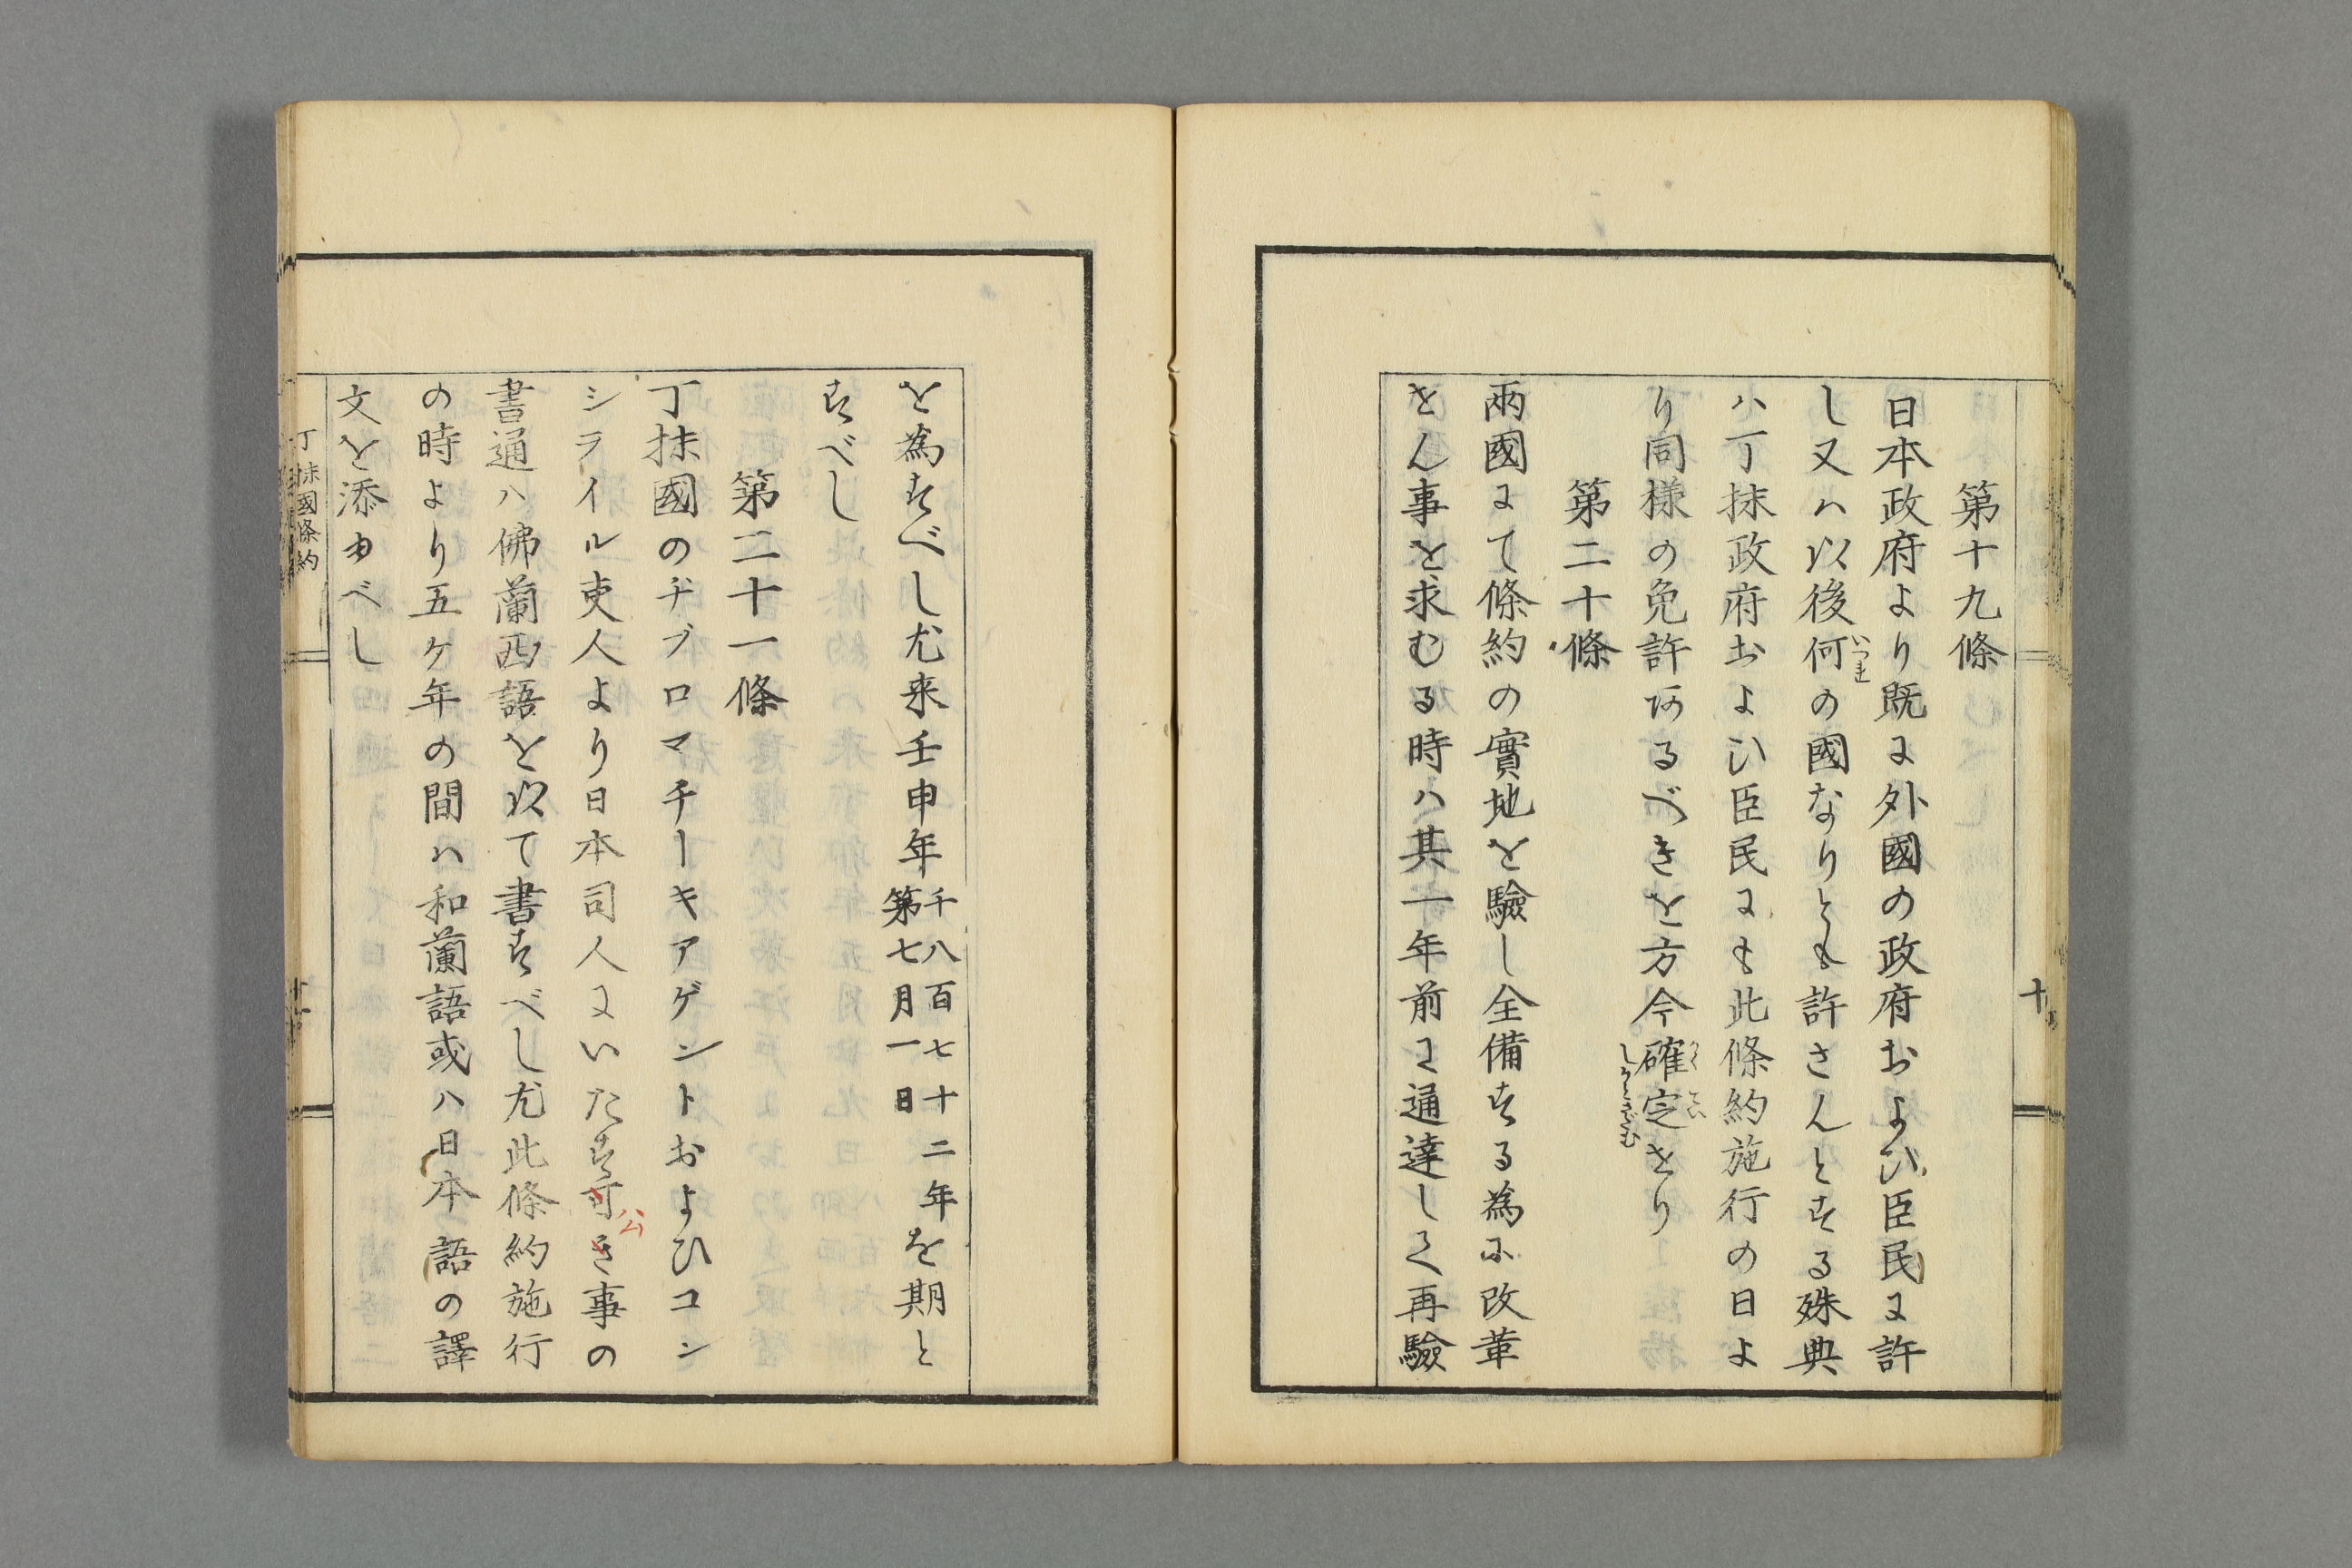 第十九條
日本政府より既に外國の政府およひ臣民に許
し又ハ以後何の國なりとも許さんとする殊典
いつれ
ハ丁抹政府およひ臣民にも此條約施行の日よ
り同様の免許あるべきを方今確定せり
しかとさだむ
第二十條
兩國にて條約の實地を驗し全備する為に改革
せん事を求むる時ハ其一年前に通達して再驗
十
を為すべし尤来壬申年
千八百七十二年
第七月一日
を期と
すべし
第二十一條
丁抹國のヂブロマチーキアゲントおよひコン
シライル吏人より日本司人にいたす可き事の
公ム
書通ハ佛蘭西語を以て書すべし尤此條約施行
の時より五ケ年の間ハ和蘭語或ハ日本語の譯
文を添ゆべし
丁抹國條約